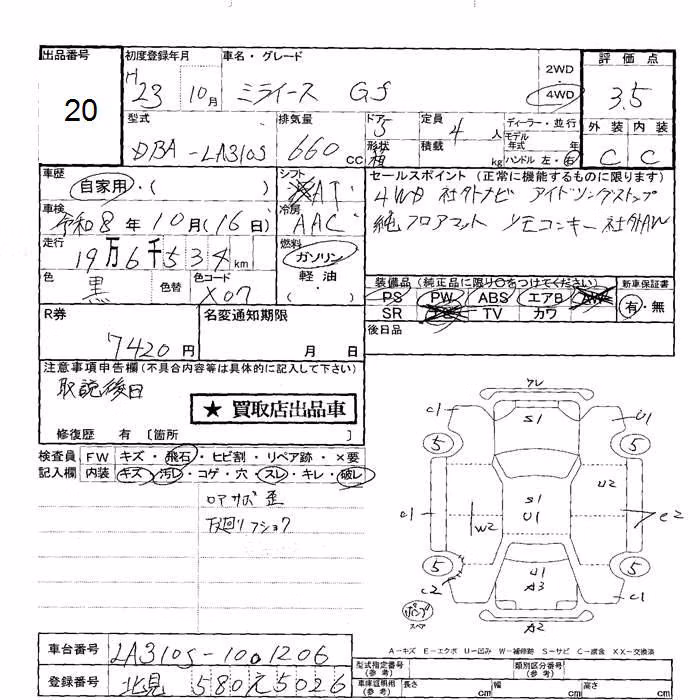 出品番号
20
初度登録年月
H
23 10月
車名・グレード
ミライース Gf
2WD
4WD
評価点
3.5
外装 内装
C C
型式
DBA-LA310S
排気量
660 cc
ドア
5
形状
箱
定員
4 人
積載
kg
ディーラー・並行
モデル年式 年
ハンドル 左・右
車歴
自家用・( )
シフト
AT
セールスポイント (正常に機能するものに限ります)
4WD 社外ナビ アイドリングストップ
純フロアマット リモコンキー 社外AW
車検
令和8年10月(16日)
冷房
AAC
走行
19万6千534km
燃料
ガソリン
軽油
( )
色
黒
色替
色コード
X07
装備品 (純正品に限り○をつけてください)
PS PW ABS エアB AW
SR TV カワ
新車保証書
有・無
後日品
R券
7420円
名変通知期限
月 日
注意事項申告欄(不具合内容等は具体的に記入して下さい)
取説後日
★ 買取店出品車
修復歴 有 〔箇所 〕
検査員 FW キズ・飛石・ヒビ割・リペア跡・×要
記入欄 内装 キズ・汚レ・コゲ・穴・スレ・キレ・破レ
ロアサポ 歪
下廻リフショク
ワレ
c1 S1 U1
5 5
U2
S1
c1 W2 U1 c2
5 5
c2 U1 c1
A3
パンク
スペア
A2
A-キズ E-エクボ U-凹み W-補修跡 S-サビ C-腐食 XX-交換済
車台番号 LA310S-1001206
登録番号 北見 580 え 5026
型式指定番号
(参考)
類別区分番号
(参考)
車庫証明用
(参考)
長さ cm 幅 cm 高さ cm